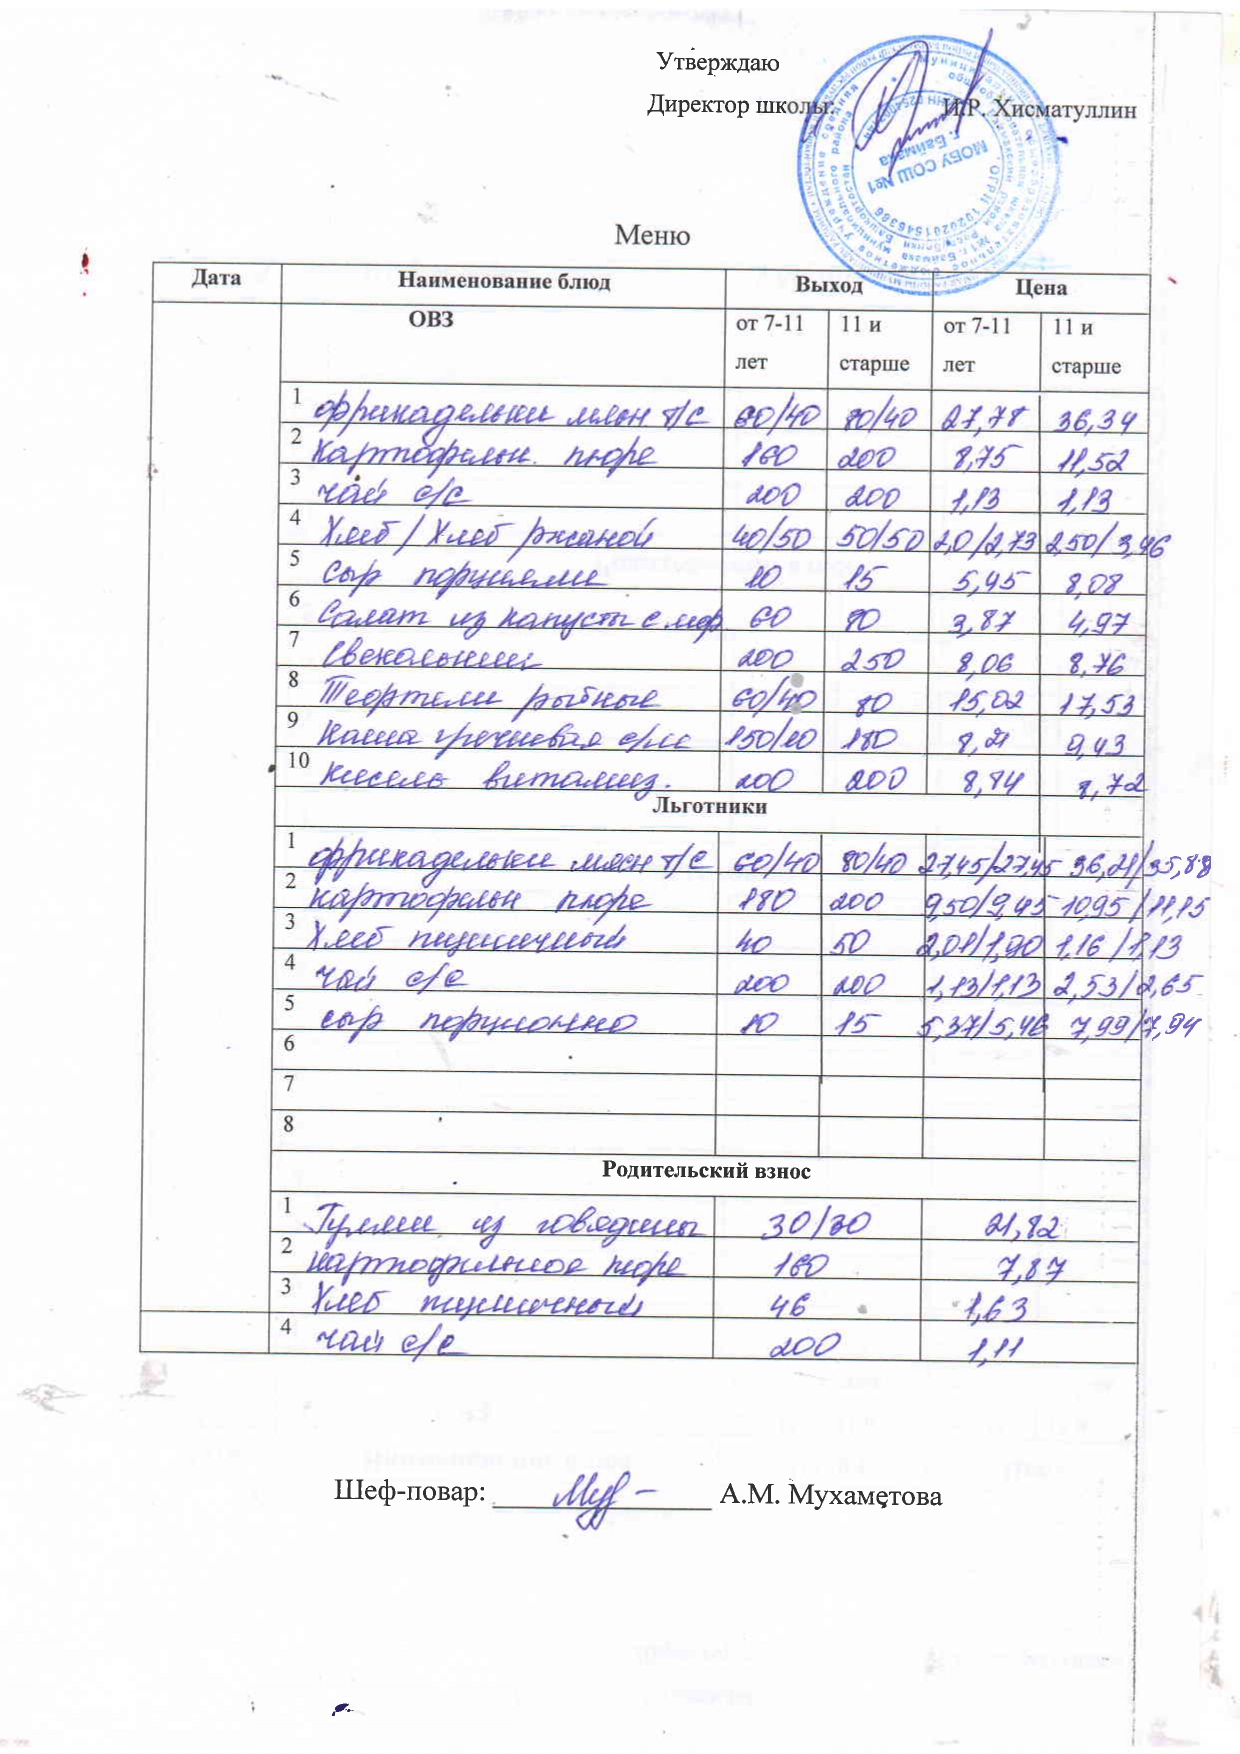 Утверждаю
Директор школы: И.Р. Хисматуллин
МОБУ СОШ №1
г. Баймака
Меню
Дата Наименование блюд Выход Цена
ОВЗ от 7-11 лет 11 и старше от 7-11 лет 11 и старше
1 фрикадельки мясн т/с 60/40 80/40 27,78 36,34
2 Картофельн. пюре 160 200 8,75 11,52
3 чай с/с 200 200 1,13 1,13
4 Хлеб/Хлеб ржаной 40/50 50/50 2,0/2,73 2,50/3,46
5 сыр порциями 10 15 5,45 8,08
6 Салат из капусты с мор. 60 80 3,87 4,97
7 Свекольник 200 250 8,06 8,76
8 Тефтели рыбные 60/40 80 15,02 17,53
9 Каша гречневая с/м 150/10 180 8,21 9,43
10 кисель витамиз. 200 200 8,84 8,72
Льготники
1 фрикадельки мясн т/с 60/40 80/40 27,45/27,45 36,21/35,88
2 картофельн пюре 180 200 9,50/9,45 10,95/11,15
3 Хлеб пшеничный 40 50 2,01/1,90 1,16/1,13
4 чай с/с 200 200 1,13/1,13 2,53/2,65
5 сыр порционно 10 15 5,37/5,46 7,99/7,94
6
7
8
Родительский взнос
1 Гуляш из говядины 30/30 21,82
2 картофельное пюре 160 7,87
3 Хлеб пшеничный 46 1,63
4 чай с/с 200 1,11
Шеф-повар: А.М. Мухаметова